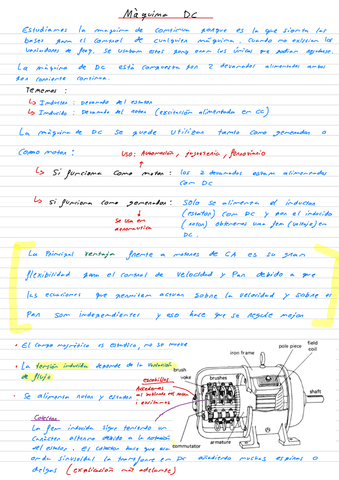 Máquina DC
Estudiamos la maquina de continua porque es la que sienta las
bases para el control de cualquier máquina. Cuando no existían los
variadores de freq. se usaban estas porq eran las únicas que podian ajustarse.
La máquina de DC está compuesta por 2 devanados alimentados ambos
por corriente continua.
Tenemos:
↳ Inductor: devanado del estator
↳ Inducido: devanado del rotor (excitación alimentada en CC)
La máquina de DC se puede utilizar tanto como generador o
como motor:
Uso: Automoción, ferrocarril
↳ Si funciona como motor: los 2 devanados estarn alimentados
con DC
↳ Si funciona como generador: solo se alimenta el inductor
(estator) con DC y por el inducido
Se usa en
aeronautica
(rotor) obtenemos una fem (voltaje) en
DC.
La Principal ventaja frente a motores de CA es su gran
flexibilidad para el control de velocidad y Par debido a que
las ecuaciones que permiten actuar sobre la velocidad y sobre el
Par son independientes y eso hace que se regule mejor
• El campo magnético es estatico, no se mueve
• La tensión inducida depende de la variación
de flujo
• Se alimenta rotor y estator
escobillas
Colector
La fem inducida sigue teniendo un
carácter alterno debido a la rotación
del rotor. El colector hace que esa
onda sinusoidal la transforme en DC añadiendo muchas espiras o
delgas (explicación más adelante)
iron frame
pole piece
field
coil
brush
yoke
brushes
shaft
commutator
armature